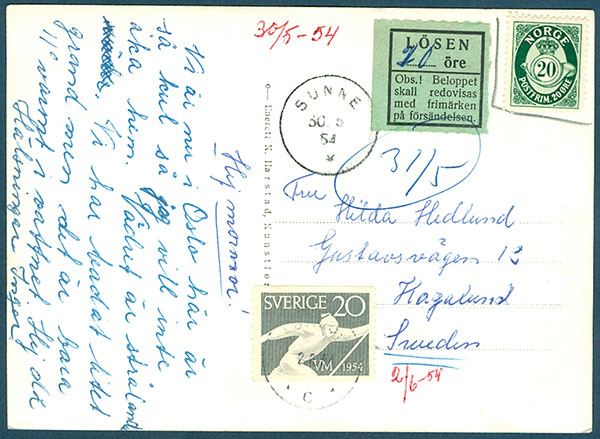 Hej mormor!
Vi är nu i Oslo här är
så kul så jag vill inte
åka hem. Vädret är strålande
Vi har badat litet
grand men det är bara
11° varmt i vattnet Hej då
Hälsningar Inger
30/5-54
LÖSEN
20 öre
Obs.! Beloppet
skall redovisas
med frimärken
på försändelsen.
NORGE
20
POSTFRIM. 20 ØRE
SUNNE
30 5
54
31/5
Fru Hilda Hedlund
Gustavsvägen 13
Hagalund
Sweden
2/6-54
SVERIGE 20
VM 1954
C
Harstad, Kunstfor